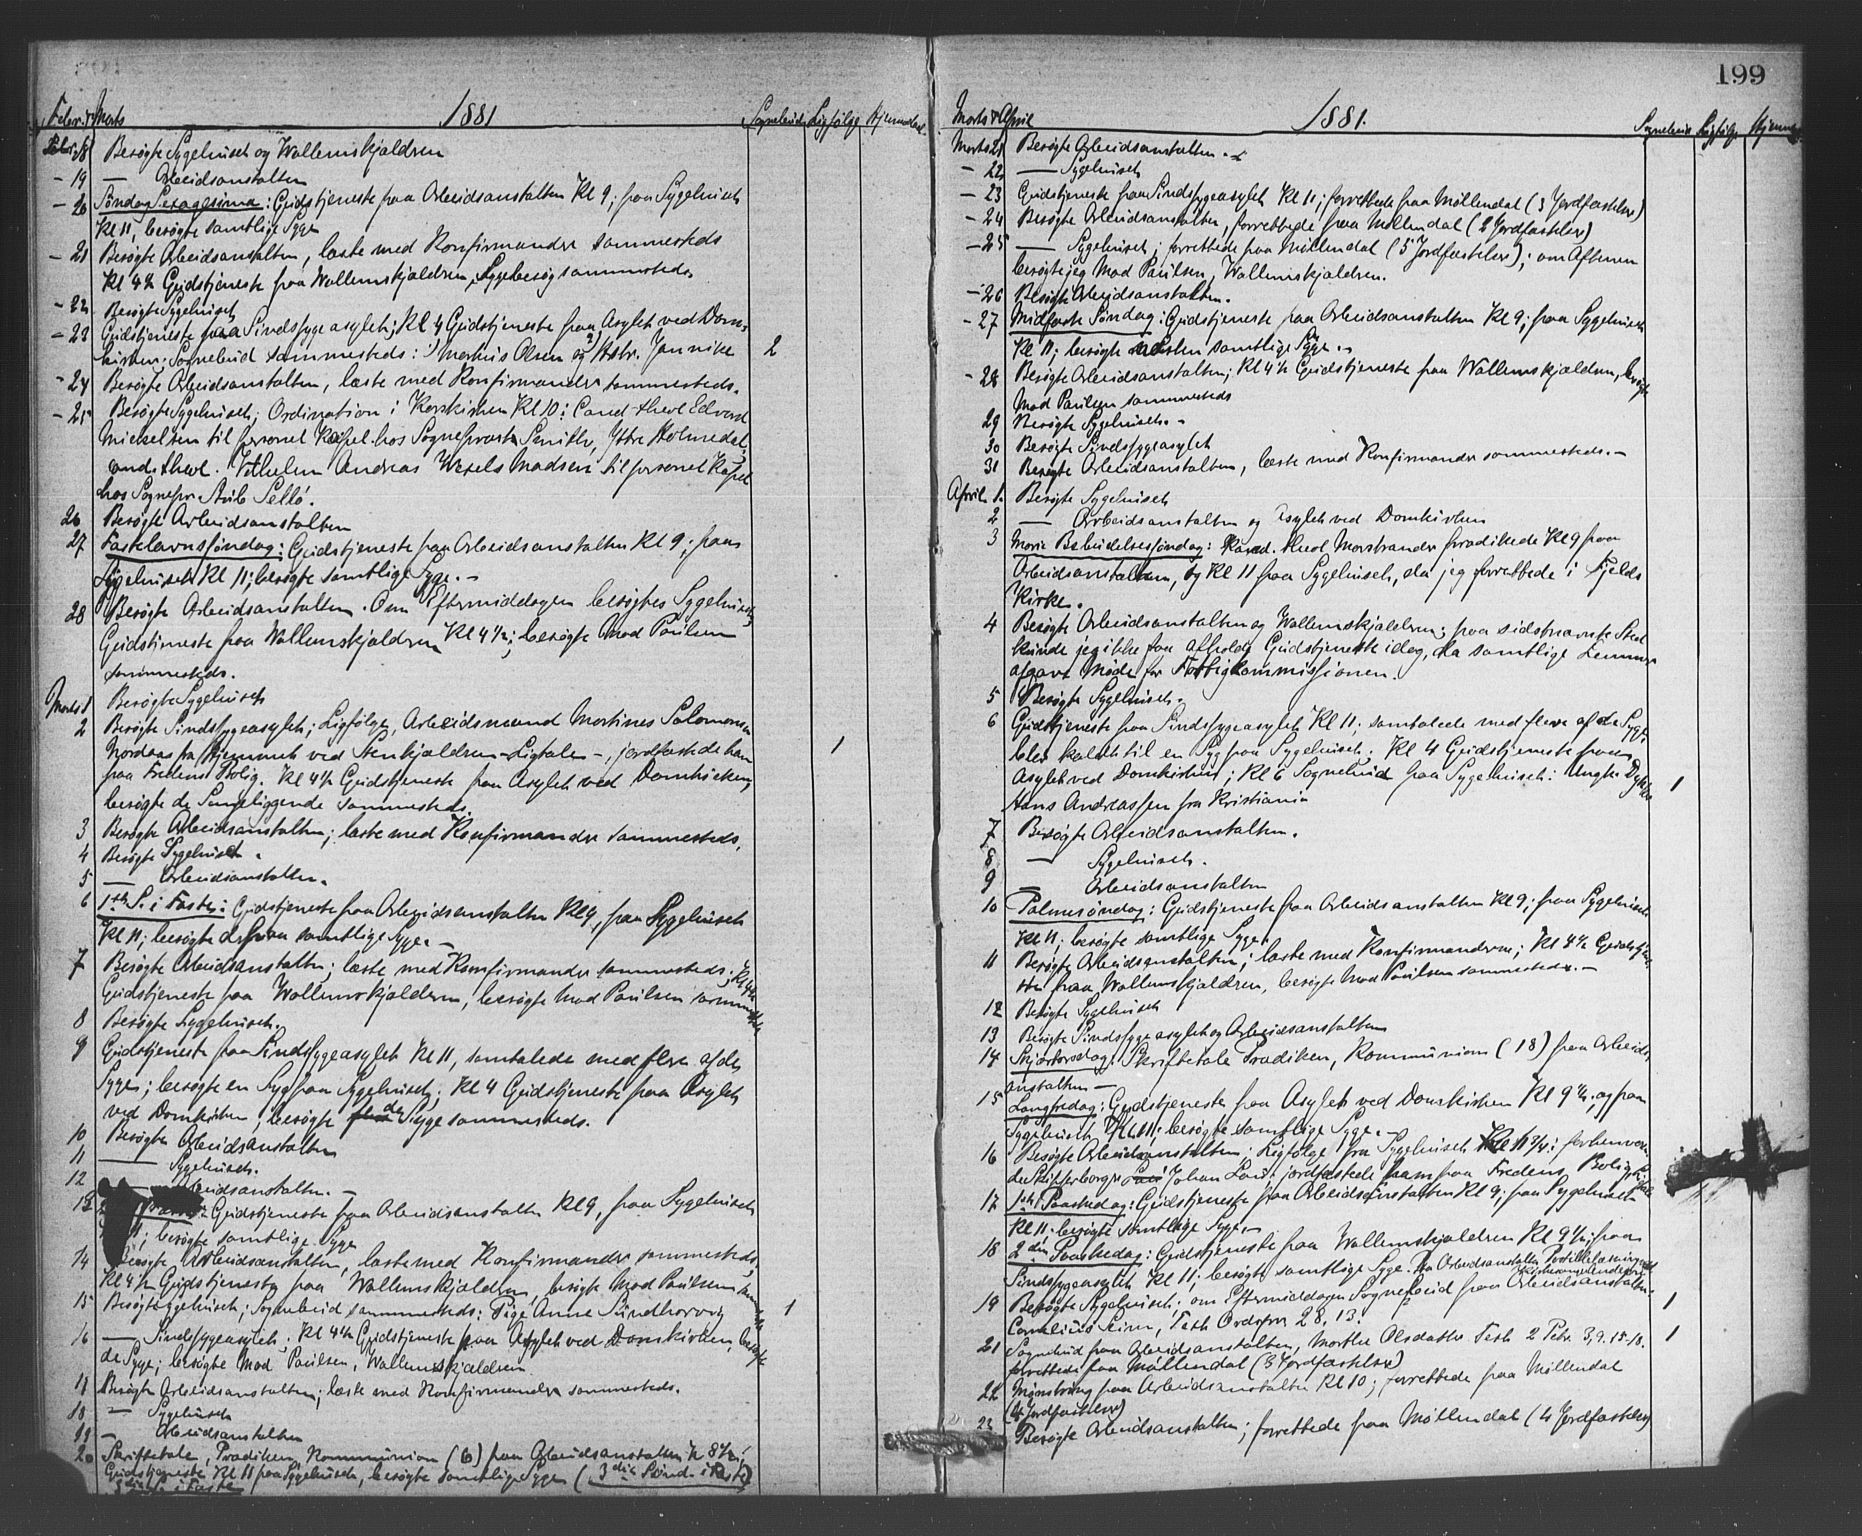 Febr. & Marts 1881 Sognebud Ligfølge Hjemmedaab
Febr. 18 Besøgte Sygehuset og Wallemskjældren
- 19 — Arbeidsanstalten
- 20 Søndag Sexagesima: Gudstjeneste paa Arbeidsanstalten Kl 9; paa Sygehuset
Kl 11, besøgte samtlige Syge
- 21 Besøgte Arbeidsanstalten, læste med Konfirmander sammesteds
Kl 4½ Gudstjeneste paa Wallemskjældren, Sygebesøg sammesteds
- 22 Besøgte Sygehuset
- 23 Gudstjeneste paa Sindssygeasylet; Kl 4 Gudstjeneste paa Asylet ved Dom-
kirken; Sognebud sammesteds: 1) Markus Olsen og 2) Jannike 2
- 24 Besøgte Arbeidsanstalten, læste med Konfirmander sammesteds.
- 25 Besøgte Sygehuset; Ordination i Korskirken Kl 10: Cand. theol Edvard
Mickelsen til personel Kapel. hos Sogneprest Smith, Ytre Holmedal,
cand. theol. Vilhelm Andreas Wexels Madsen til personel Kapel
hos Sognepr. Aub Selbø.
26 Besøgte Arbeidsanstalten
27 Fastelavnssøndag: Gudstjeneste paa Arbeidsanstalten Kl 9; paa
Sygehuset Kl 11; besøgte samtlige Syge. -
28 Besøgte Arbeidsanstalten. Om Eftermiddagen besøgtes Sygehuset,
Gudstjeneste paa Wallemskjældren Kl 4½; besøgte Mad Paulsen
sammesteds.
Marts 1 Besøgte Sygehuset
2 Besøgte Sindssygeasylet; Ligfølge, Arbeidsmand Martines Salomonsen
Nordaas fra Hjemmet ved Stenkjældren - Ligtale -, jordfæstede ham 1
paa Fredens Bolig. Kl 4½ Gudstjeneste paa Asylet ved Domkirken,
besøgte de Sengeliggende sammesteds.
3 Besøgte Arbeidsanstalten; læste med Konfirmander sammesteds.
4 Besøgte Sygehuset.
5 — Arbeidsanstalten.
6 1ste S. i Faste: Gudstjeneste paa Arbeidsanstalten Kl 9, paa Sygehuset
Kl 11; besøgte samtlige Syge. —
7 Besøgte Arbeidsanstalten; læste med Konfirmander sammesteds; Kl 4½
Gudstjeneste paa Wallemskjælderen, besøgte Mad Paulsen sammesteds
8 Besøgte Sygehuset.
9 Gudstjeneste paa Sindssygeasylet Kl 11, samtalede med flere af de
Syge; besøgte en Syg paa Sygehuset. Kl 4 Gudstjeneste paa Asylet
ved Domkirken, besøgte de Syge sammesteds.
10 Besøgte Arbeidsanstalten
11 — Sygehuset.
12 Arbeidsanstalten. —
13 Gudstjeneste paa Arbeidsanstalten Kl 9, paa Sygehuset
11; besøgte samtlige Syge
14 Besøgte Arbeidsanstalten, læste med Konfirmander sammesteds,
Kl 4½ Gudstjeneste paa Wallemskjælderen, besøgte Mad Paulsen
15 Besøgte Sygehuset; Sognebud sammesteds: Pige Anne Sundhorvig 1
16 — Sindssygeasylet; Kl 4½ Gudstjeneste paa Asylet ved Domkirken, besøgte
de Syge; besøgte Mad Paulsen, Wallemskjældren
17 Besøgte Arbeidsanstalten; læste med Konfirmander sammesteds.
18 — Sygehuset
19 — Arbeidsanstalten
20 Skriftetale, Prædiken, Kommunion (6) paa Arbeidsanstalten Kl 8½,
Gudstjeneste Kl 11 paa Sygehuset, besøgte samtlige Syge (3die Sønd. i Faste)
3die S. i Faste
199
Marts & April 1881. Sognebud Ligfølge Hjemmed.
Marts 21 Besøgte Arbeidsanstalten.
- 22 — Sygehuset
- 23 Gudstjeneste paa Sindssygeasylet Kl 11; forrettede paa Møllendal (3 Jordfæstelser)
- 24 Besøgte Arbeidsanstalten, forrettede paa Møllendal (2 Jordfæstelser)
- 25 — Sygehuset; forrettede paa Møllendal (5 Jordfæstelser); om Aftenen
besøgte jeg Mad Paulsen, Wallemskjældren.
- 26 Besøgte Arbeidsanstalten.
- 27 Midfaste Søndag: Gudstjeneste paa Arbeidsanstalten Kl 9; paa Sygehuset
Kl 11; besøgte næsten samtlige Syge. -
- 28 Besøgte Arbeidsanstalten; Kl 4½ Gudstjeneste paa Wallemskjældren, besøgte
Mad Paulsen sammesteds
29 Besøgte Sygehuset. -
30 Besøgte Sindssygeasylet
31 Besøgte Arbeidsanstalten, læste med Konfirmander sammesteds. -
April 1. Besøgte Sygehuset
2 — Arbeidsanstalten og Asylet ved Domkirken
3 Mariæ Bebudelsessøndag: Kand. theol Morstrander prædikede Kl 9 paa
Arbeidsanstalten, og Kl 11 paa Sygehuset, da jeg forrettede i Fjelds
Kirke.
4 Besøgte Arbeidsanstalten og Wallemskjældren; paa sidstnævnte Sted
kunde jeg ikke faa afholde Gudstjeneste idag, da samtlige Lemmer
afgave Møde for Fattigkommissionen.
5 Besøgte Sygehuset.
6 Gudstjeneste paa Sindssygeasylet Kl 11; samtalede med flere af de Syge,
blev kaldet til en Syg paa Sygehuset. Kl 4 Gudstjeneste paa
Asylet ved Domkirken; Kl 6 Sognebud paa Sygehuset: Ungk. 1
Hans Andreassen fra Kristiania
7 Besøgte Arbeidsanstalten.
8 — Sygehuset.
9 — Arbeidsanstalten
10 Palmesøndag: Gudstjeneste paa Arbeidsanstalten Kl 9; paa Sygehuset
Kl 11; besøgte samtlige Syge.
11 Besøgte Arbeidsanstalten; læste med Konfirmanderne; Kl 4½ Gudstjene-
ste paa Wallemskjældren, besøgte Mad Paulsen sammesteds. -
12 Besøgte Sygehuset
13 Besøgte Sindssygeasylet og Arbeidsanstalten
14 Skjærtorsdag: Skriftetale Prædiken, Kommunion (18) paa Arbeids-
anstalten —
15 Langfredag: Gudstjeneste paa Asylet ved Domkirken Kl 9½; og paa
Sygehuset Kl 11; besøgte samtlige Syge. -
16 Besøgte Arbeidsanstalten; Ligfølge fra Sygehuset forhenværen-
de Johan jordfæstede ham paa Fredens Bolig
17 1ste Paaskedag: Gudstjeneste paa Arbeidsanstalten Kl 9; paa Sygehuset
Kl 11; besøgte samtlige Syge. -
18 2den Paaskedag: Gudstjeneste paa Wallemskjældren Kl 9½; paa
Sindssygeasylet Kl 11; besøgte samtlige Syge. Paa Arbeidsanstalten Postillelæsning
19 Besøgte Sygehuset; om Eftermiddagen Sognebud paa Arbeidsanstalten 1
Cornelius Text Ordspr. 28, 13.
21 Sognebud paa Arbeidsanstalten, Marthe Olsdatter Text 2 Petr. 3, 9. 15-18. 1
forrettede paa Møllendal (3 Jordfæstelser)
22 Mønstring paa Arbeidsanstalten Kl 10; forrettede paa Møllendal
(4 Jordfæstelser)
23 Besøgte Arbeidsanstalten; forrettede paa Møllendal (4 Jordfæstelser)